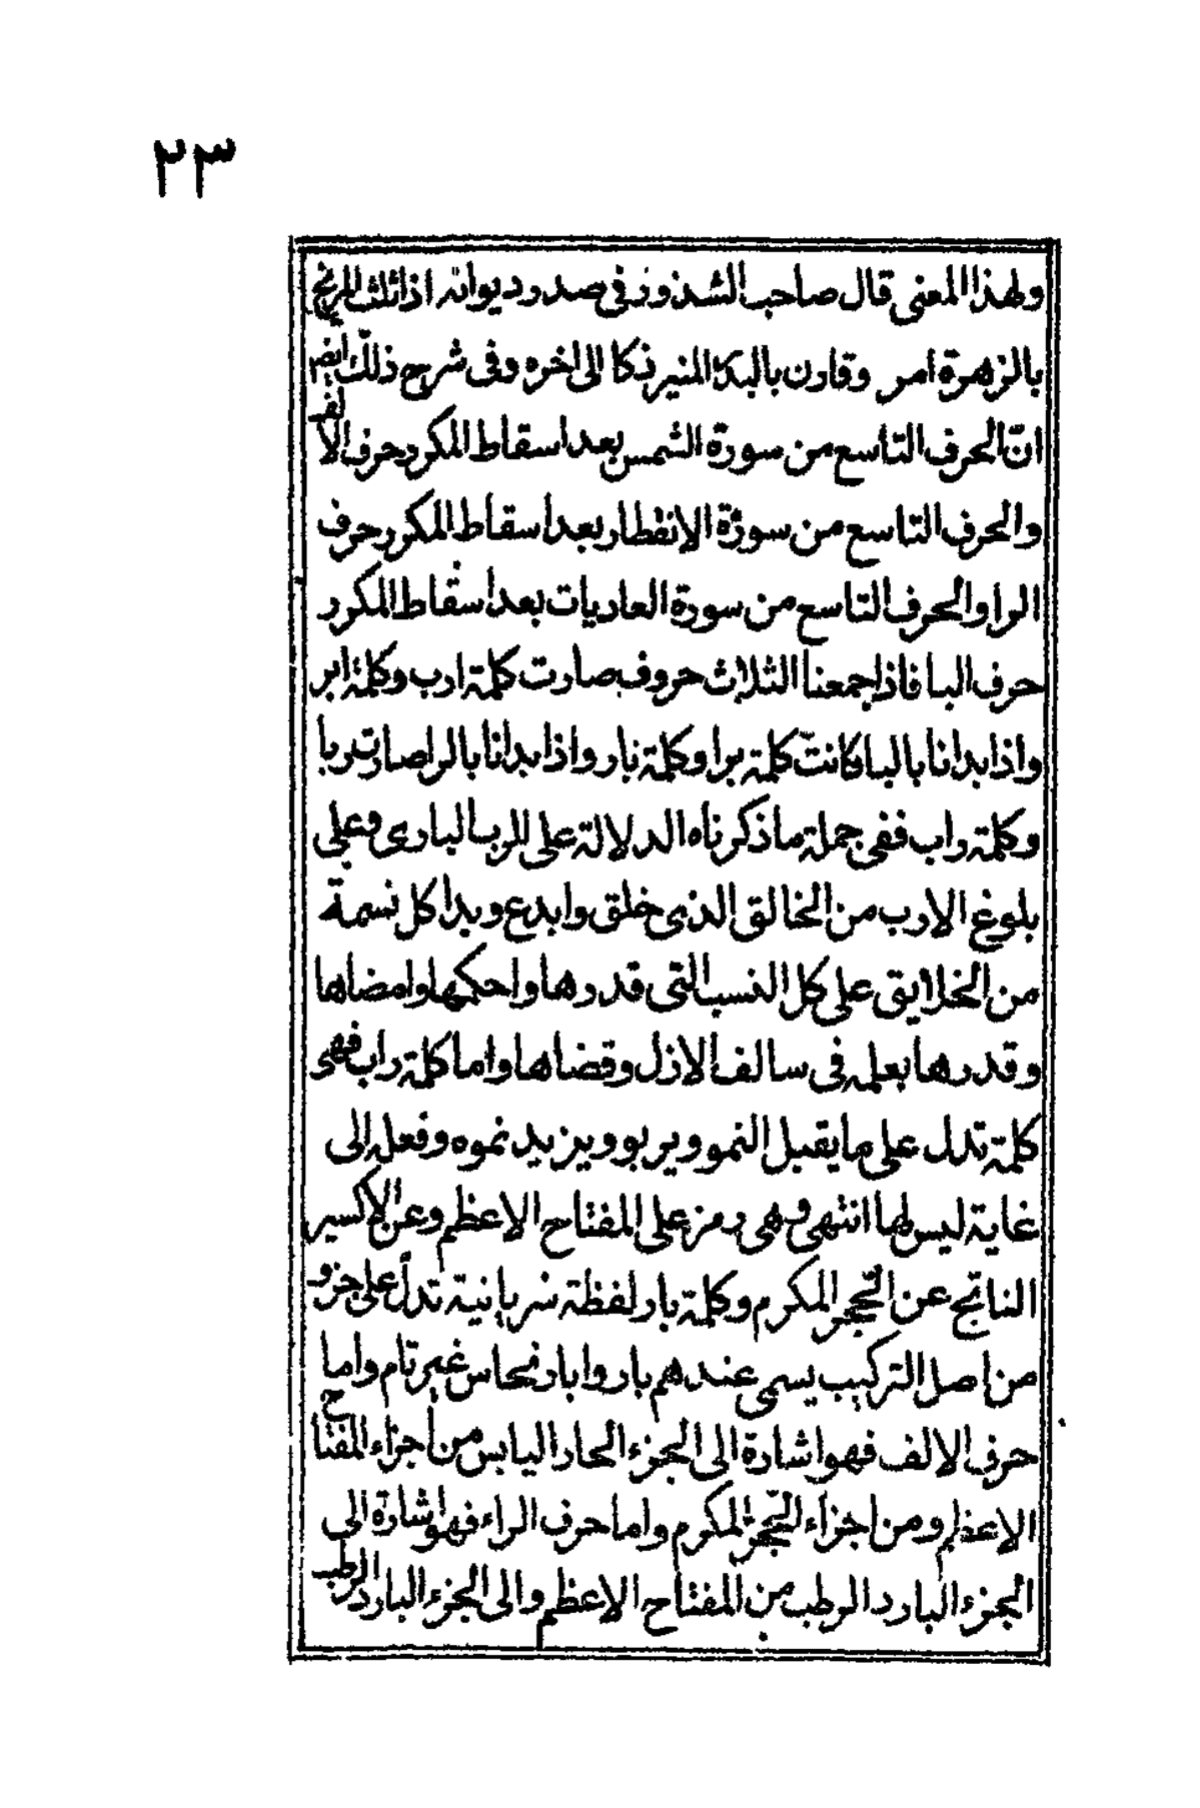 ٢٣
ولهذا المعنى قال صاحب الشذور فى صدر ديوانه اذا ثلث المريخ
بالزهرة امر وقارن بالبدر المنير ذكا الى اخره وفى شرح ذلك ايضا
انّ الحرف التاسع من سورة الشمس بعد اسقاط المكرر حرف الالف
والحرف التاسع من سورة الانفطار بعد اسقاط المكرر حرف
الرا والحرف التاسع من سورة العاديات بعد اسقاط المكرر
حرف البا فاذا جمعنا الثلاث حروف صارت كلمة ارب وكلمة ابر
واذا بدانا بالبا كانت كلمة برا وكلمة بار واذا بدانا بالرا صارت ربا
وكلمة راب ففى جملة ما ذكرناه الدلالة على الرب البارى وعلى
بلوغ الارب من الخالق الذى خلق وابدع وبدا كل نسمة
من الخلايق على كل النسب التى قدرها واحكمها وامضاها
وقدرها بعلمه فى سالف الازل وقضاها واما كلمة راب فهى
كلمة تدل على ما يقبل النمو ويربو ويزيد نموه وفعله الى
غاية ليس لها انتهى وهى رمز على المفتاح الاعظم وعن الاكسير
الناتج عن الحجر المكرم وكلمة بار لفظة سريانية تدل على جزو
من اصل التركيب يسمى عندهم بار وابار نحاس غير تام واما
حرف الالف فهو اشارة الى الجزء الحار اليابس من اجزاء المفتاح
الاعظم ومن اجزاء الحجر المكرم واما حرف الراء فهو اشارة الى
الجزء البارد الرطب من المفتاح الاعظم والى الجزء البارد الرطب